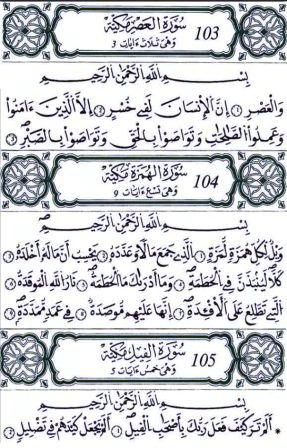 103 سُورَةُ الْعَصْرِ مَكِّيَّة
وَهِيَ ثَلَاثُ ءَايَات 3
بِسْمِ اللَّهِ الرَّحْمَٰنِ الرَّحِيمِ
وَالْعَصْرِ ① إِنَّ الْإِنسَانَ لَفِي خُسْرٍ ② إِلَّا الَّذِينَ ءَامَنُوا
وَعَمِلُوا الصَّالِحَاتِ وَتَوَاصَوْا بِالْحَقِّ وَتَوَاصَوْا بِالصَّبْرِ ③
104 سُورَةُ الْهُمَزَةِ مَكِّيَّة
وَهِيَ تِسْعُ ءَايَات 9
بِسْمِ اللَّهِ الرَّحْمَٰنِ الرَّحِيمِ
وَيْلٌ لِّكُلِّ هُمَزَةٍ لُّمَزَةٍ ① الَّذِي جَمَعَ مَالًا وَعَدَّدَهُ ② يَحْسِبُ أَنَّ مَالَهُ أَخْلَدَهُ ③
كَلَّا لَيُنبَذَنَّ فِي الْحُطَمَةِ ④ وَمَا أَدْرَاكَ مَا الْحُطَمَةُ ⑤ نَارُ اللَّهِ الْمُوقَدَةُ ⑥
الَّتِي تَطَّلِعُ عَلَى الْأَفْئِدَةِ ⑦ إِنَّهَا عَلَيْهِم مُّوصَدَةٌ ⑧ فِي عَمَدٍ مُّمَدَّدَةٍ ⑨
105 سُورَةُ الْفِيلِ مَكِّيَّة
وَهِيَ خَمْسُ ءَايَات 5
بِسْمِ اللَّهِ الرَّحْمَٰنِ الرَّحِيمِ
* أَلَمْ تَرَ كَيْفَ فَعَلَ رَبُّكَ بِأَصْحَابِ الْفِيلِ ① أَلَمْ يَجْعَلْ كَيْدَهُمْ فِي تَضْلِيلٍ ②